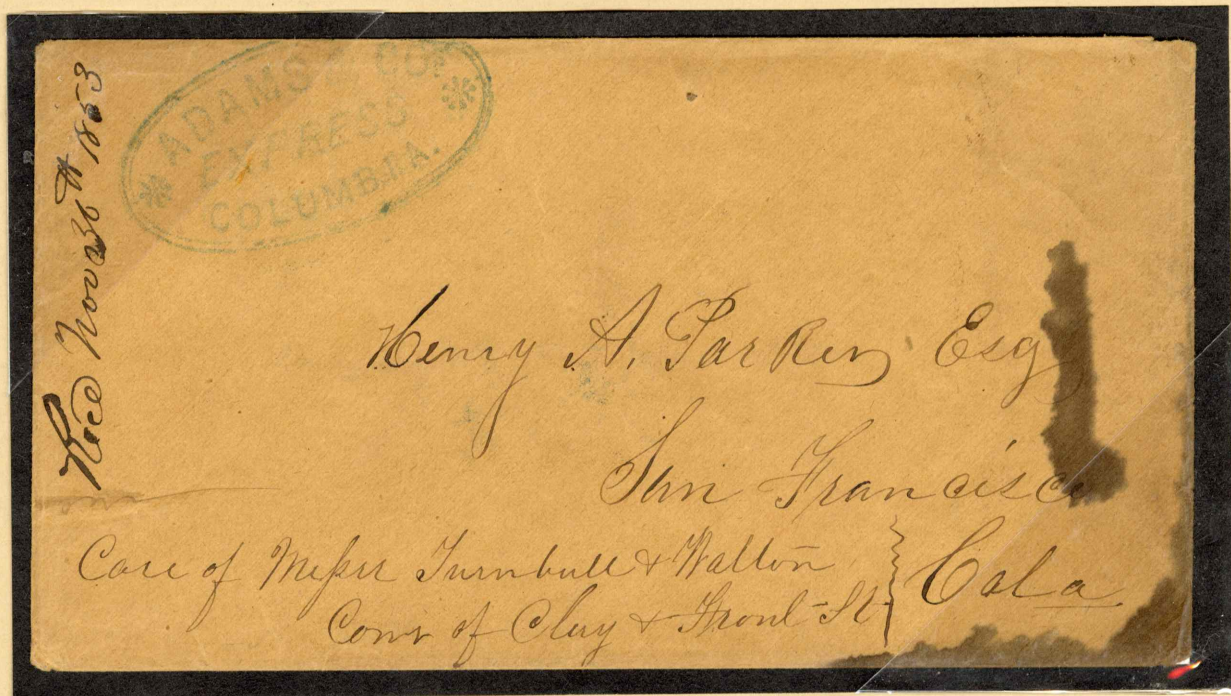 Recd Nov 30th 1853
ADAMS & CO.
EXPRESS
COLUMBIA.
Henry A. Parker Esq
San Francisco
Care of Messrs Turnbull & Walton
Cornr of Clay & Front St
Cala